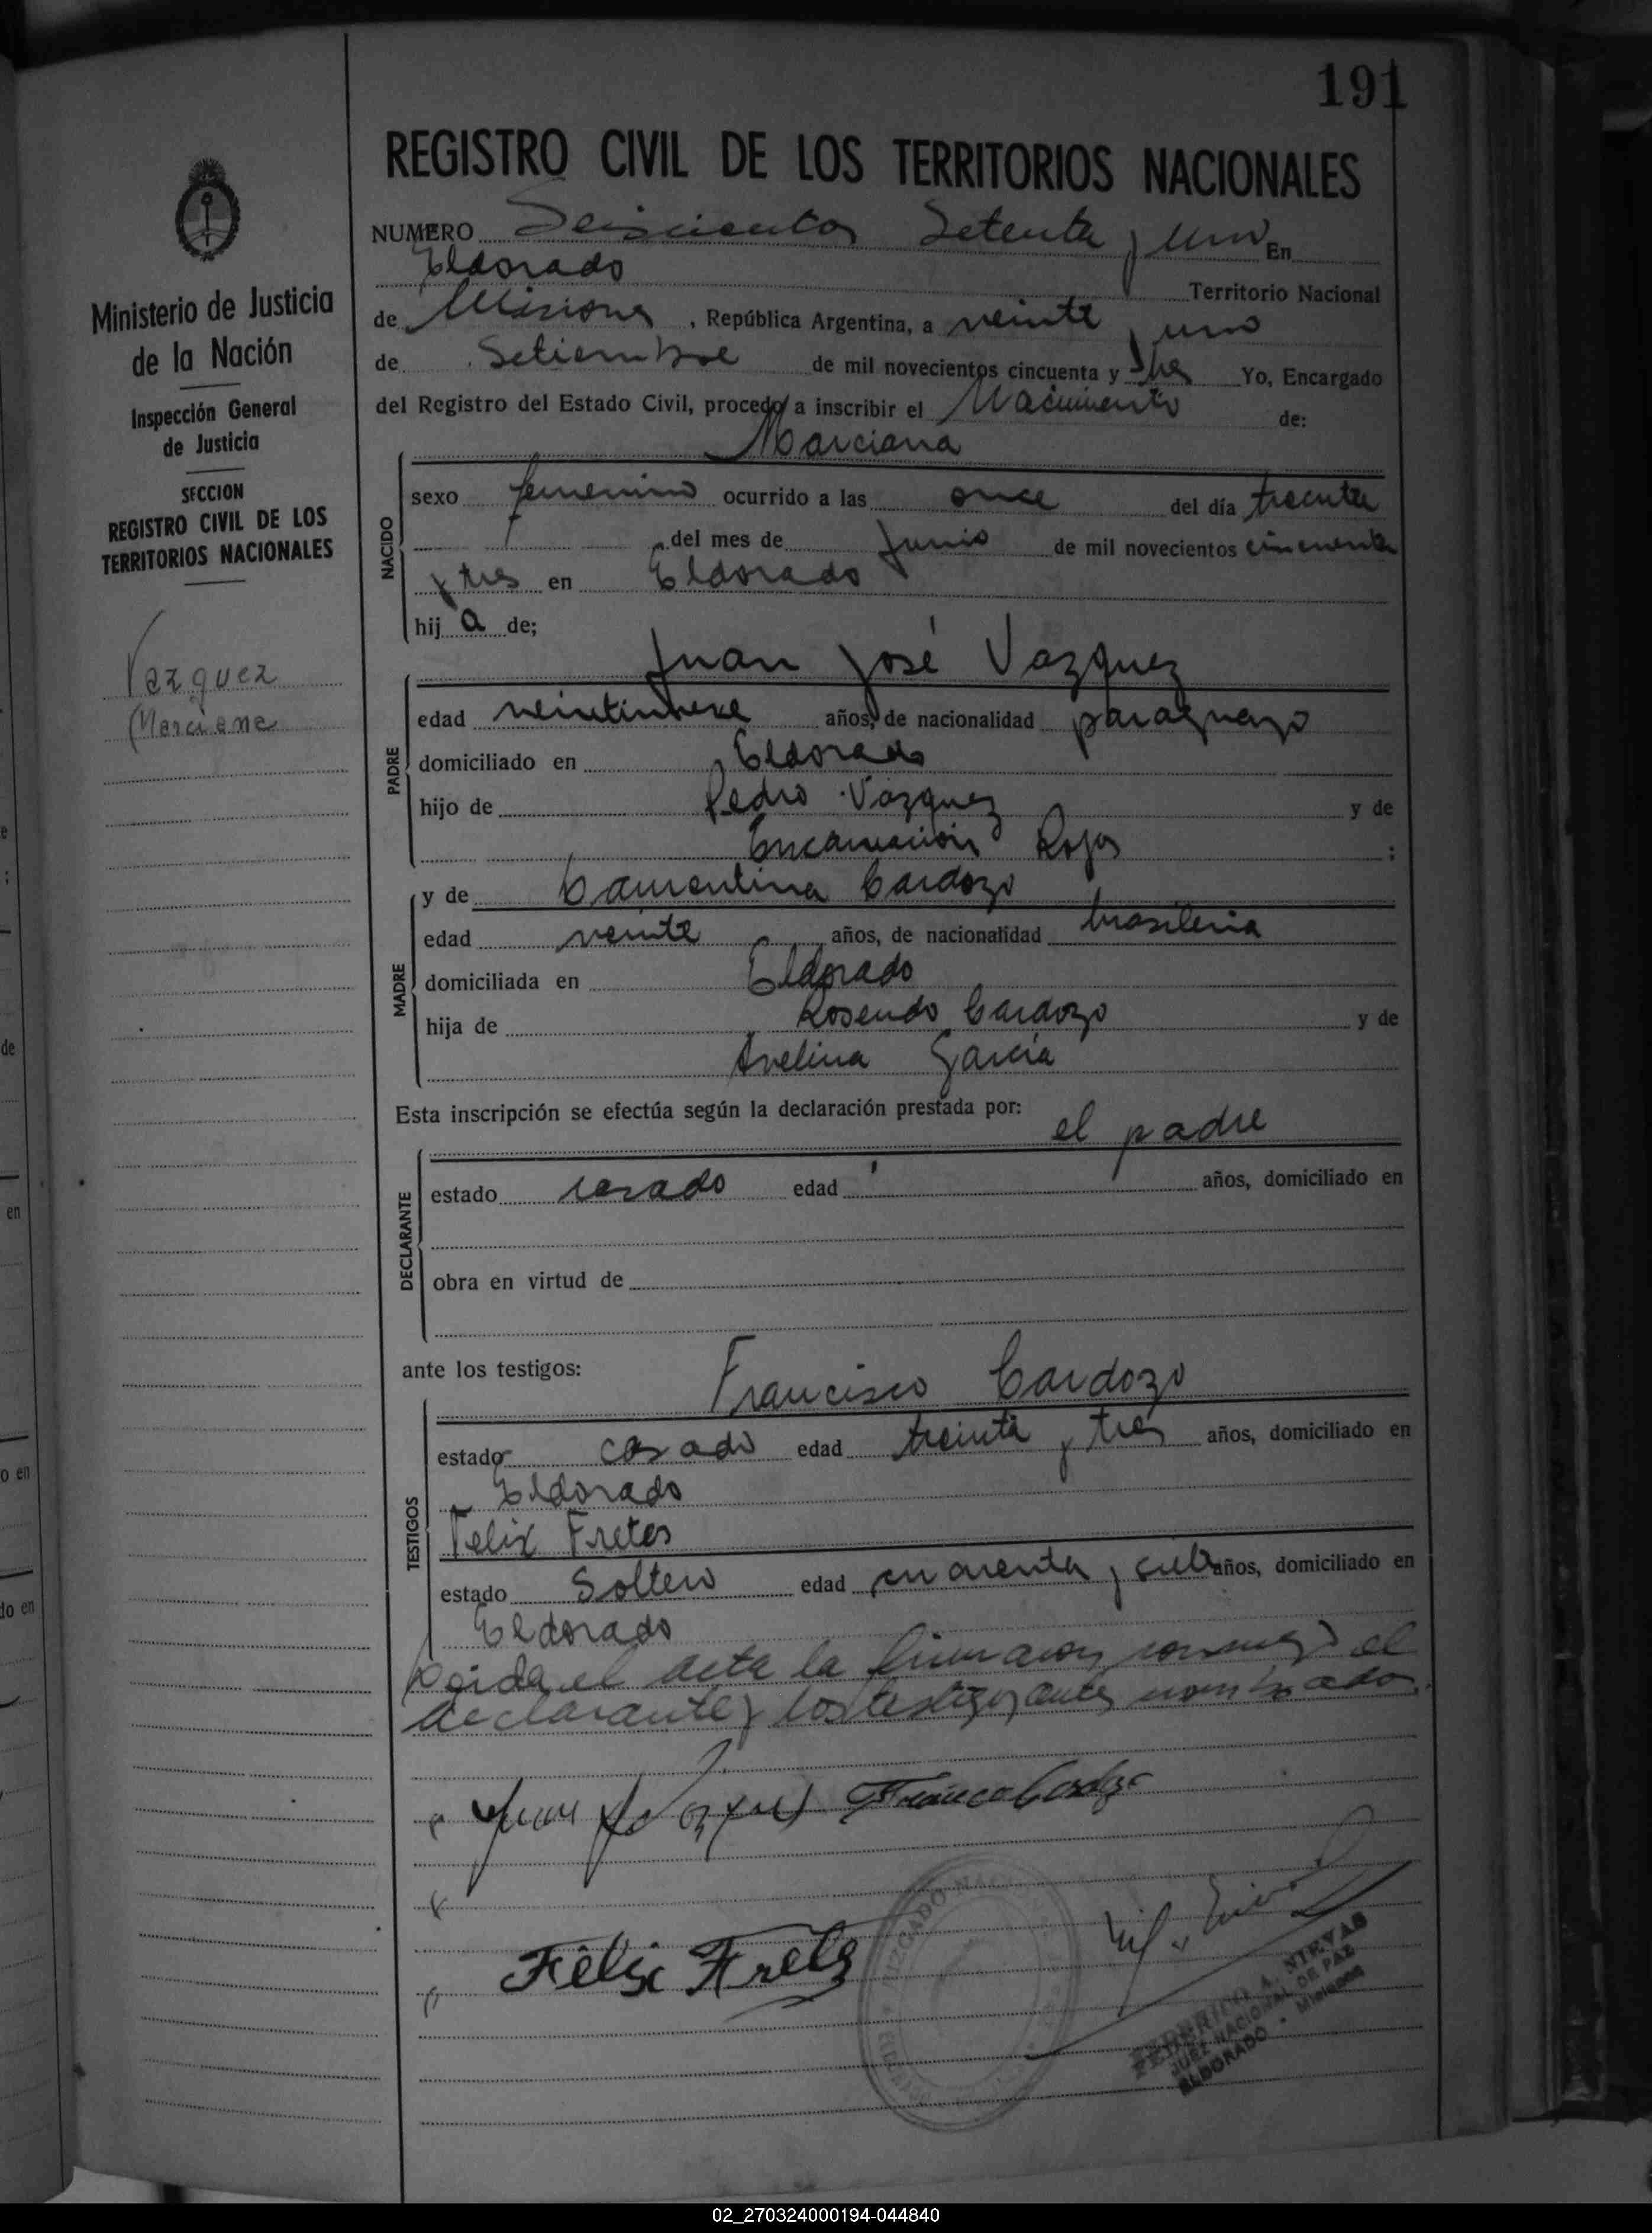 191
REGISTRO CIVIL DE LOS TERRITORIOS NACIONALES
Ministerio de Justicia
de la Nación
Inspección General
de Justicia
SECCION
REGISTRO CIVIL DE LOS
TERRITORIOS NACIONALES
Vazquez
Marciana
NUMERO Seiscientos Setenta y uno En
Eldorado Territorio Nacional
de Misiones, República Argentina, a veinte y uno
de Setiembre de mil novecientos cincuenta y tres Yo, Encargado
del Registro del Estado Civil, procedo a inscribir el Nacimiento de:
Marciana
NACIDO
sexo femenino ocurrido a las once del día treinta
del mes de Junio de mil novecientos cincuenta
y tres en Eldorado
hij a de;
Juan José Vazquez
PADRE
edad años, de nacionalidad paraguayo
domiciliado en Eldorado
hijo de Pedro Vazquez y de
Encarnación Rojas ;
MADRE
y de Cardozo
edad veinte años, de nacionalidad brasileria
domiciliada en Eldorado
hija de Rosendo Cardozo y de
Avelina García
Esta inscripción se efectúa según la declaración prestada por:
el padre
DECLARANTE
estado casado edad años, domiciliado en
obra en virtud de
ante los testigos:
Francisco Cardozo
TESTIGOS
estado casado edad treinta y tres años, domiciliado en
Eldorado
Felix Fretes
estado Soltero edad años, domiciliado en
Eldorado
Leida el acta la firmaron conmigo el
declarante y los testigos antes nombrados.
Felix Frets
JUZGADO
FEDERICO A. NIEVAS
JUEZ NACIONAL DE PAZ
ELDORADO - Misiones
02_270324000194-044840